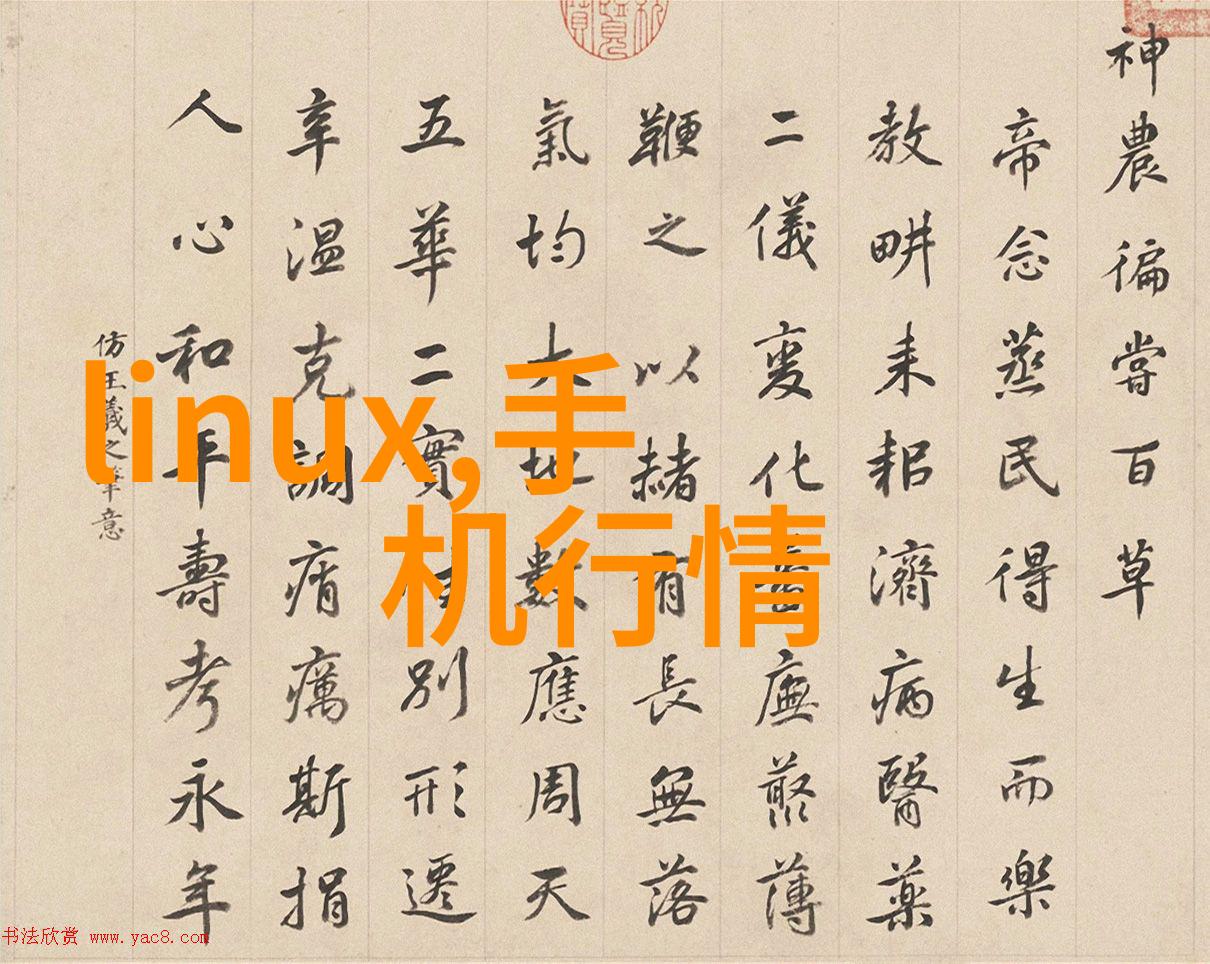 神農徧嘗百草
帝念蒸民得生而樂
教畊耒耜濟病醫藥
二儀變化 廡叢薄
鞭之以赭有長無落
氣均大地數應周天
五華二實 別形遷
辛温克調瘠癘斯捐
人心和平壽考永年
仿王羲之筆意
linux,手
机行情
书法欣赏 www.yac8.com